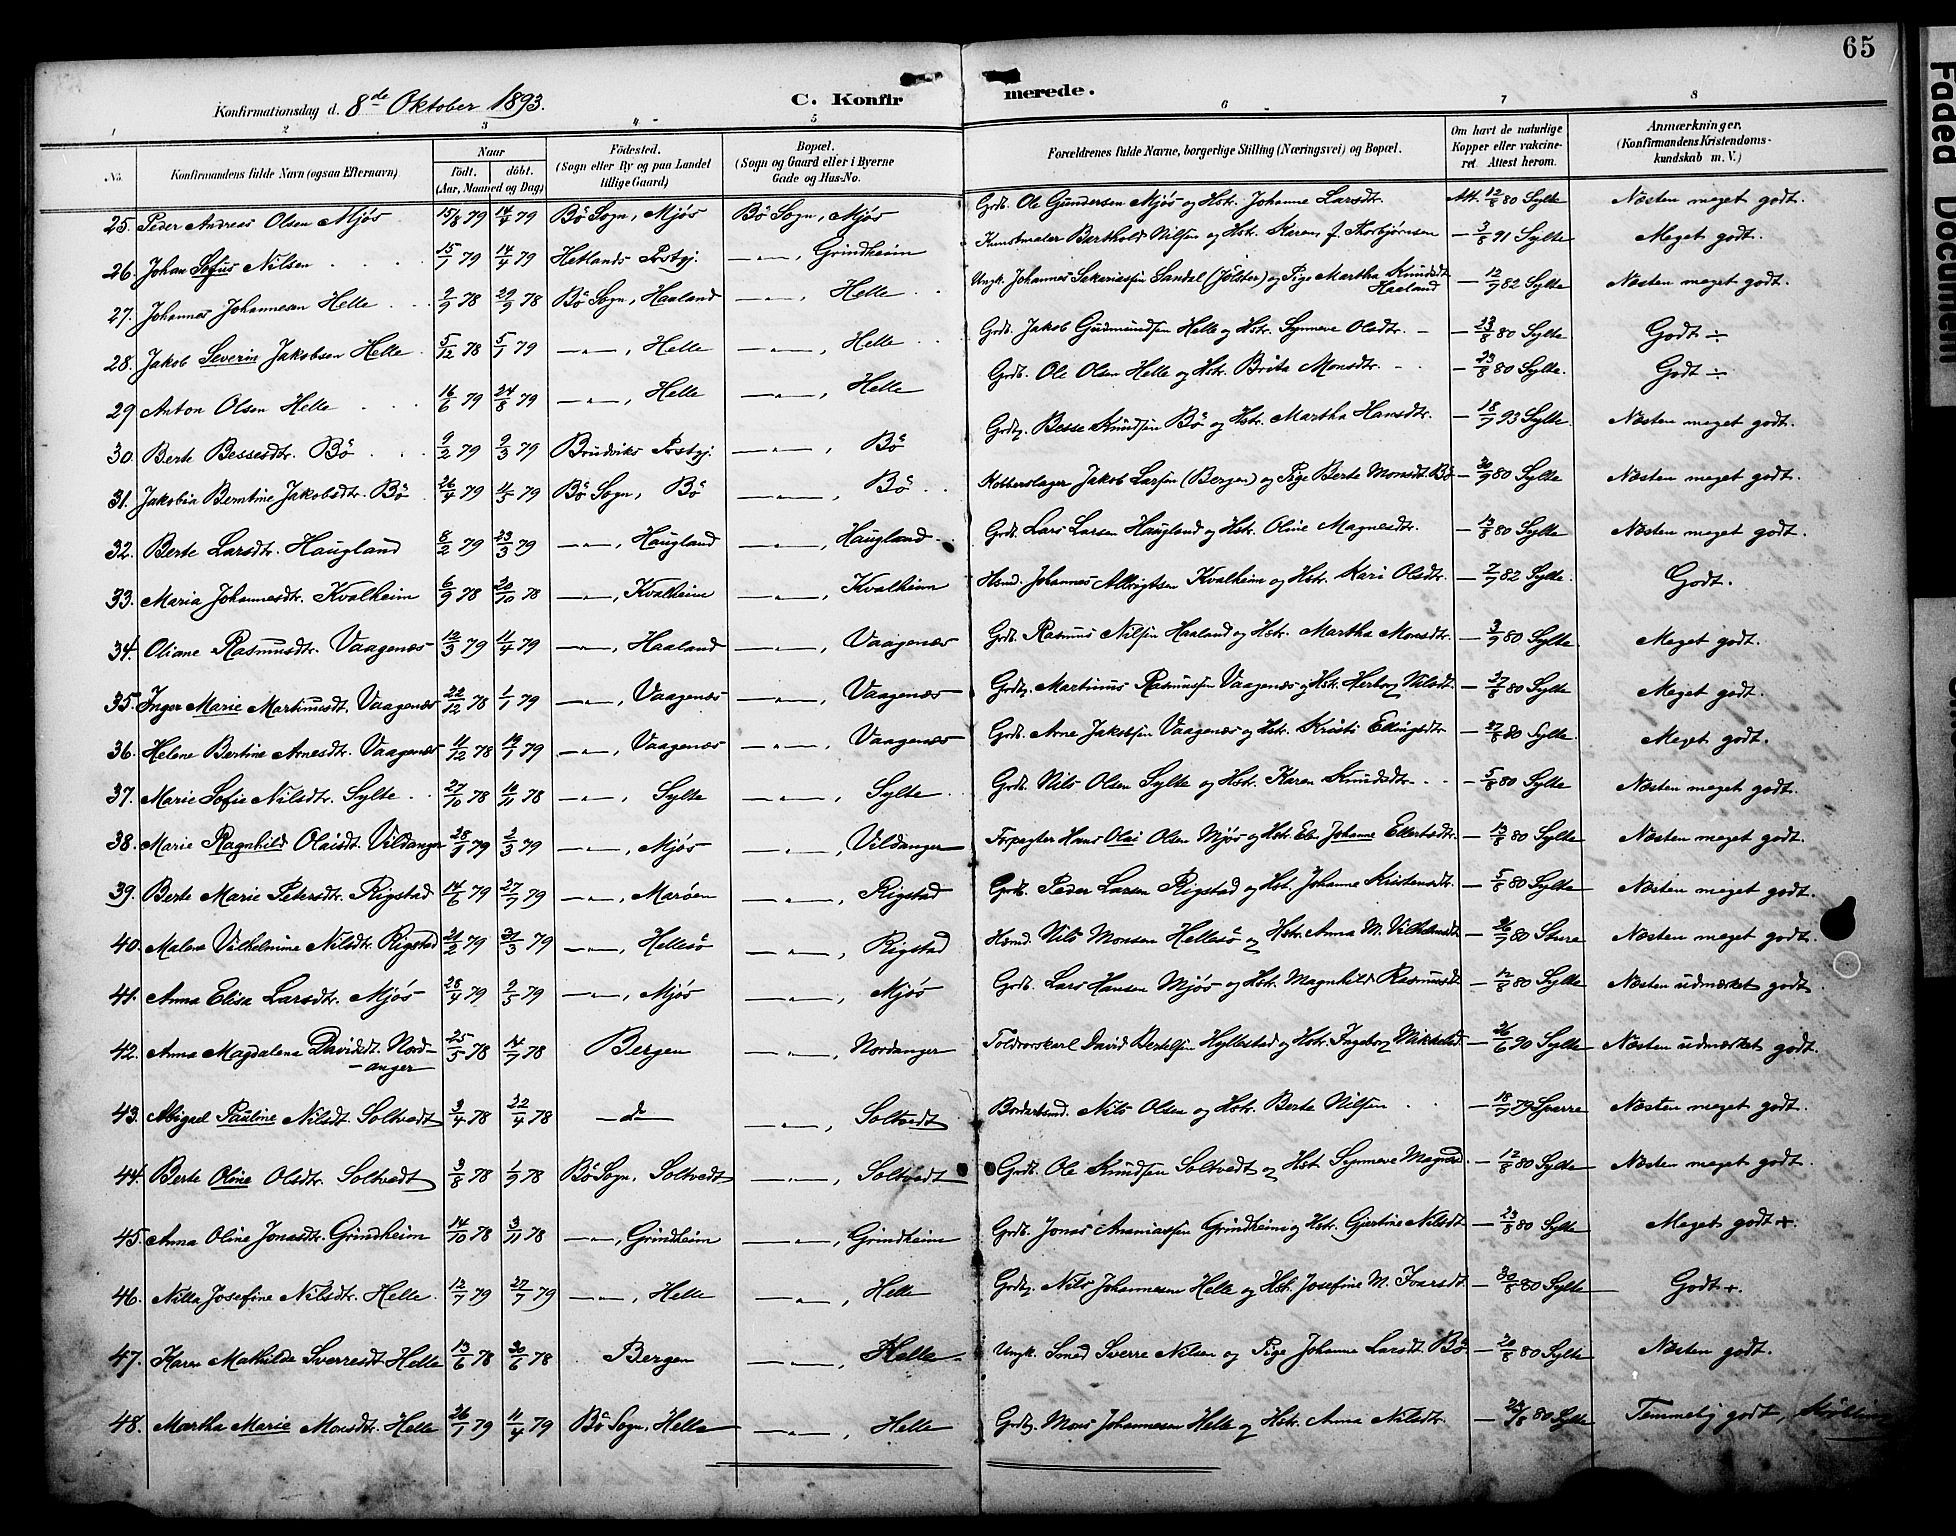 65
Konfirmationsdag d. 8de Oktober 1893. C. Konfirmerede.
1 2 3 4 5 6 7 8
No. Konfirmandens fulde Navn (ogsaa Efternavn). Naar Født. døbt. (Aar, Maaned og Dag) Fødested. (Sogn eller By og paa Landet tillige Gaard) Bopæl. (Sogn og Gaard eller i Byerne Gade og Hus-No. Forældrenes fulde Navne, borgerlige Stilling (Næringsvei) og Bopæl. Om havt de naturlige Kopper eller vakcineret. Attest herom. Anmærkninger. (Konfirmandens Kristendomskundskab m. V.)
25. Peder Andreas Olsen Mjøs 79 14/4 79 Bø Sogn, Mjøs Bø Sogn, Mjøs Grdb. Ole Gundersen Mjøs og Hstr. Johanne Larsdtr. Att. 12/8 80 Sylte Næsten meget godt.
26. Johan Sofus Nilsen 15/1 79 14/4 79 Hetlands Prstgj. —"—, Grindheim Kunstmaler Berthold Nilsen og Hstr. Karen f. Thorbjørnsen — 3/8 91 Sylte Meget godt.
27. Johannes Johannesen Helle 9/9 78 29/9 78 Bø Sogn, Haaland —"—, Helle Ungk. Johannes Sakariassen Sandal (Jølster) og Pige Martha Knudsdt Haaland — 12/9 82 Sylte Næsten meget godt.
28. Jakob Severin Jakobsen Helle 5/12 78 5/1 79 —"—, Helle —"—, Helle Grdb. Jakob Gudmundsen Helle og Hstr. Synneve Olsdtr. — 23/8 80 Sylte Godt ÷
29 Anton Olsen Helle 16/6 79 24/8 79 —"—, Helle —"—, Helle Grdb. Ole Olsen Helle og Hstr. Brita Monsdtr. — 23/8 80 Sylte. Godt ÷
30. Berte Bessesdtr. Bø 9/2 79 9/3 79 Brudviks Prstgj. —"—, Bø Grdbr. Besse Knudsen Bø og Hstr. Martha Hansdtr. — 18/9 93 Sylte. Næsten meget godt.
31. Jakobia Berntine Jakobsdtr. Bø 26/4 79 11/5 79 Bø Sogn, Bø —"—, Bø Kobberslager Jakob Larsen (Bergen) og Pige Berte Monsdt. Bø — 30/9 80 Sylte Næsten meget godt.
32. Berte Larsdtr. Haugland 8/2 79 23/3 79 —"—, Haugland —"—, Haugland Grdb. Lars Larsen Haugland og Hstr. Oline Magnesdtr. — 13/8 80 Sylte Næsten meget godt.
33. Maria Johannesdtr. Kvalheim 6/9 78 20/10 78 —"—, Kvalheim —"—, Kvalheim Hsmd. Johannes Albrigtsen Kvalheim og Hstr. Kari Olsdtr. — 7/9 82 Sylte. Godt.
34. Oliane Rasmusdtr. Vaagenæs 12/3 79 11/4 79 —"—, Haaland —"—, Vaagenæs Grdb. Rasmus Nilsen Haaland og Hstr. Martha Monsdtr. — 3/9 80 Sylte. Meget godt.
35. Inger Marie Martinusdt. Vaagenæs 22/12 78 1/1 79 —"—, Vaagenæs —"—, Vaagenæs Grdbr. Martinus Rasmussen Vaagenæs og Hstr. Herborg Nilsdt. — 27/8 80 Sylte Meget godt.
36. Helene Bertine Arnesdtr. Vaagenæs 11/12 78 19/1 79 —"—, Vaagenæs —"—, Vaagenæs Grdb. Arne Jakobsen Vaagenæs og Hstr. Kristi Ellingsdtr — 27/8 80 Sylte. Meget godt.
37. Marie Sofie Nilsdtr. Sylte 27/10 78 10/11 78 —"—, Sylte —"—, Sylte Grdb. Nils Olsen Sylte og Hstr. Karen Knudsdtr. — 5/8 80 Sylte Næsten meget godt.
38. Marie Ragnhild Olaisdt. Vildanger 28/1 79 2/3 79 —"—, Mjøs —"—, Vildanger Forpagter Hans Olai Olsen Mjøs og Hstr. Johanne Ellertsdtr. — 13/8 80 Sylte Næsten meget godt.
39. Berte Marie Petersdtr. Rigstad 14/6 79 27/7 79 —"—, Marøen —"—, Rigstad Grdb. Peder Larsen Rigstad og Hst. Johanne Kristensdtr. — 5/8 80 Sylte Næsten meget godt.
40. Malna Vilhelmine Nilsdtr. Rigstad 21/2 79 31/3 79 —"—, Hellesø —"—, Rigstad Hsmd. Nils Monsen Hellesø og Hstr. Anna M. Vilhelmsdt. — 26/7 80 Sture Næsten meget godt.
41. Anna Elisa Larsdtr. Mjøs 28/4 79 9/5 79 —"—, Mjøs —"—, Mjøs Grdb. Lars Hansen Mjøs og Hstr. Magnhild Rasmusdt. — 12/8 80 Sylte Næsten udmærket godt.
42. Anna Magdalena Davidsdt. Nordanger 25/5 78 14/7 78 Bergen —"—, Nordanger Toldrorskarl David Bertelsen Hyllestad og Hstr. Ingeborg Mikkelsd. — 26/6 90 Sylte Næsten udmærket godt.
43. Abigael Pauline Nilsdt. Soltvedt 3/4 78 22/4 78 —do— —"—, Soltvedt Bordarbmd. Nils Olsen og Hstr. Berte Nilsen — 18/7 79 Sverre Næsten meget godt.
44. Berte Oline Olsdtr. Soltvedt 3/8 78 1/9 78 Bø Sogn, Soltvedt —"—, Soltvedt Grdb. Ole Knudsen Soltvedt og Hst. Synneve Magnsd. — 12/8 80 Sylte Næsten meget godt.
45. Anna Oline Jonasdtr. Grindheim 14/10 78 3/11 78 —"—, Grindheim —"—, Grindheim Grdb. Jonas Ananiassen Grindheim og Hstr. Gjertine Nilsdt. — 23/8 80 Sylte Meget godt +.
46. Nilla Josefine Nilsdtr. Helle 12/7 79 27/7 79 —"—, Helle —"—, Helle Grdbr. Nils Johannesen Helle og Hst. Josefine M. Ivarsdt. — 30/8 80 Sylte Godt +.
47. Karen Mathilde Sverresdt. Helle 13/6 78 30/6 78 Bergen —"—, Helle Ungk. Sverre Nilsen og Pige Johanne Larsdt. Bø. — 20/8 80 Sylte Næsten godt.
48. Martha Marie Monsdtr. Helle 26/1 79 11/4 79 Bø Sogn, Helle —"—, Helle Grdbr. Mons Johannesen Helle og Hstr. Anna Nilsdtr. — 24/8 80 Sylte Temmelig godt,
Faded Document